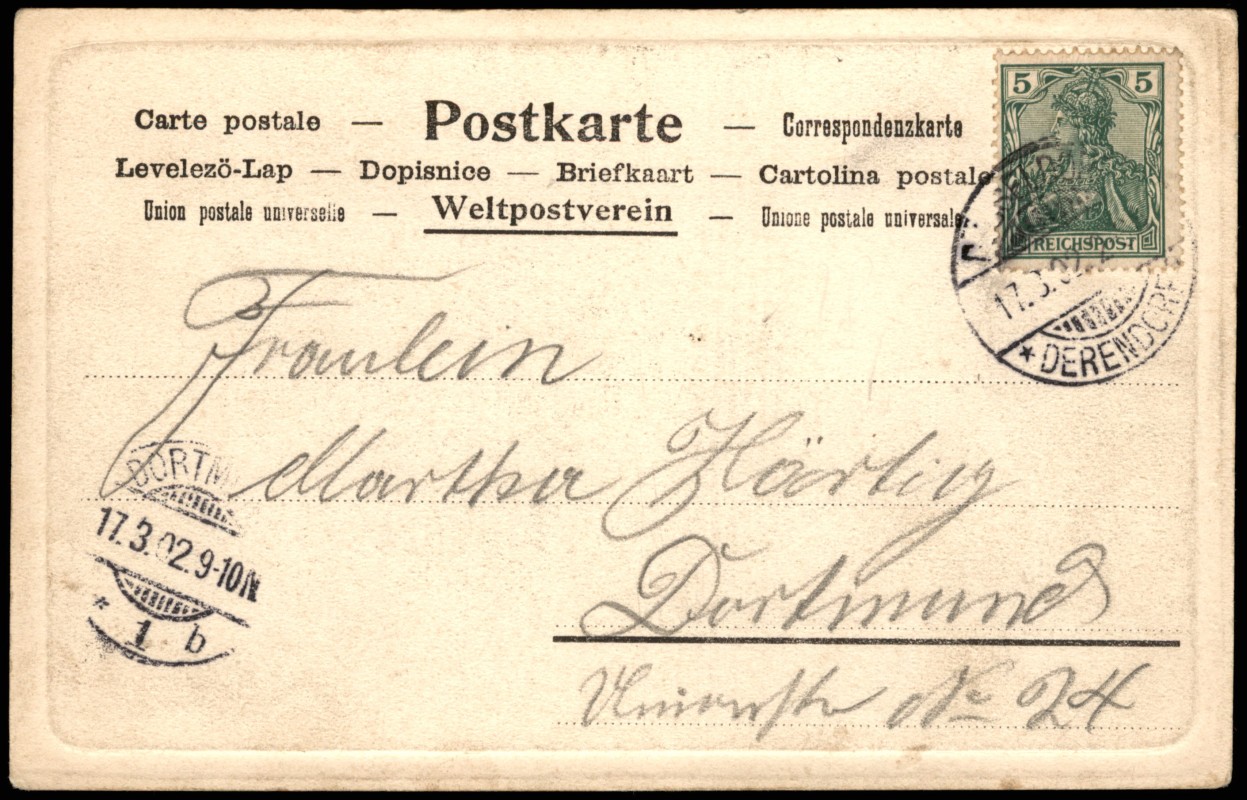 Carte postale — Postkarte — Correspondenzkarte
Levelező-Lap — Dopisnice — Briefkaart — Cartolina postale
Union postale universelle — Weltpostverein — Unione postale universale
5 5
REICHSPOST
17.3.02.
* DERENDORF
Fräulein
Martha Härtig
Dortmund
Unionstr No 24
DORTM
17.3.02.9-10N
* 1 b